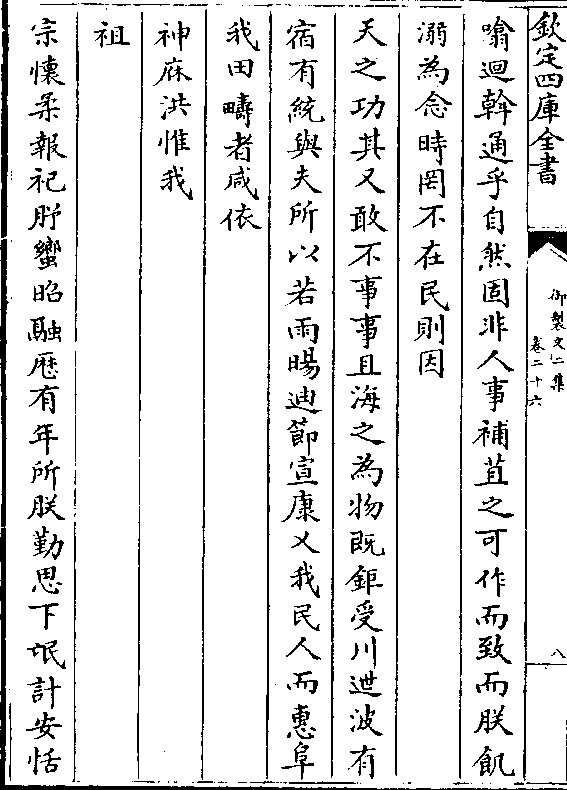 欽定四庫全書
御製文二集
卷二十六
八
噏迴斡通乎自然固非人事補苴之可作而致而朕飢
溺為念時罔不在民則因
天之功其又敢不事事且海之為物既鉅受川迣波有
宿有統與夫所以若雨暘迪節宣康乂我民人而惠阜
我田疇者咸依
神庥洪惟我
祖
宗懷柔報祀肸蠁昭融歷有年所朕勤思下氓計安恬